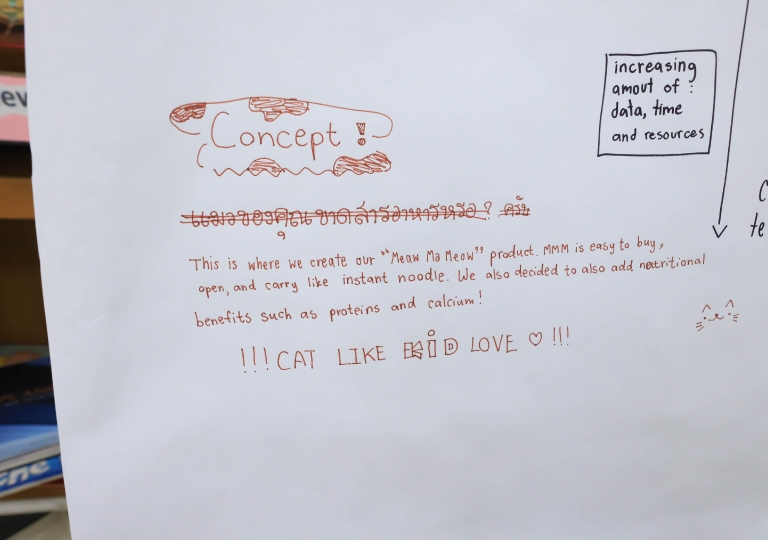 ev
Concept !
แมวของคุณขาดสารอาหารหรอ ? ครับ
This is where we create our "Meaw Ma Meow" product. MMM is easy to buy,
open, and carry like instant noodle. We also decided to also add nutritional
benefits such as proteins and calcium!
!!! CAT LIKE KID LOVE ♡ !!!
increasing
amout of :
data, time
and resources
C
te
ne